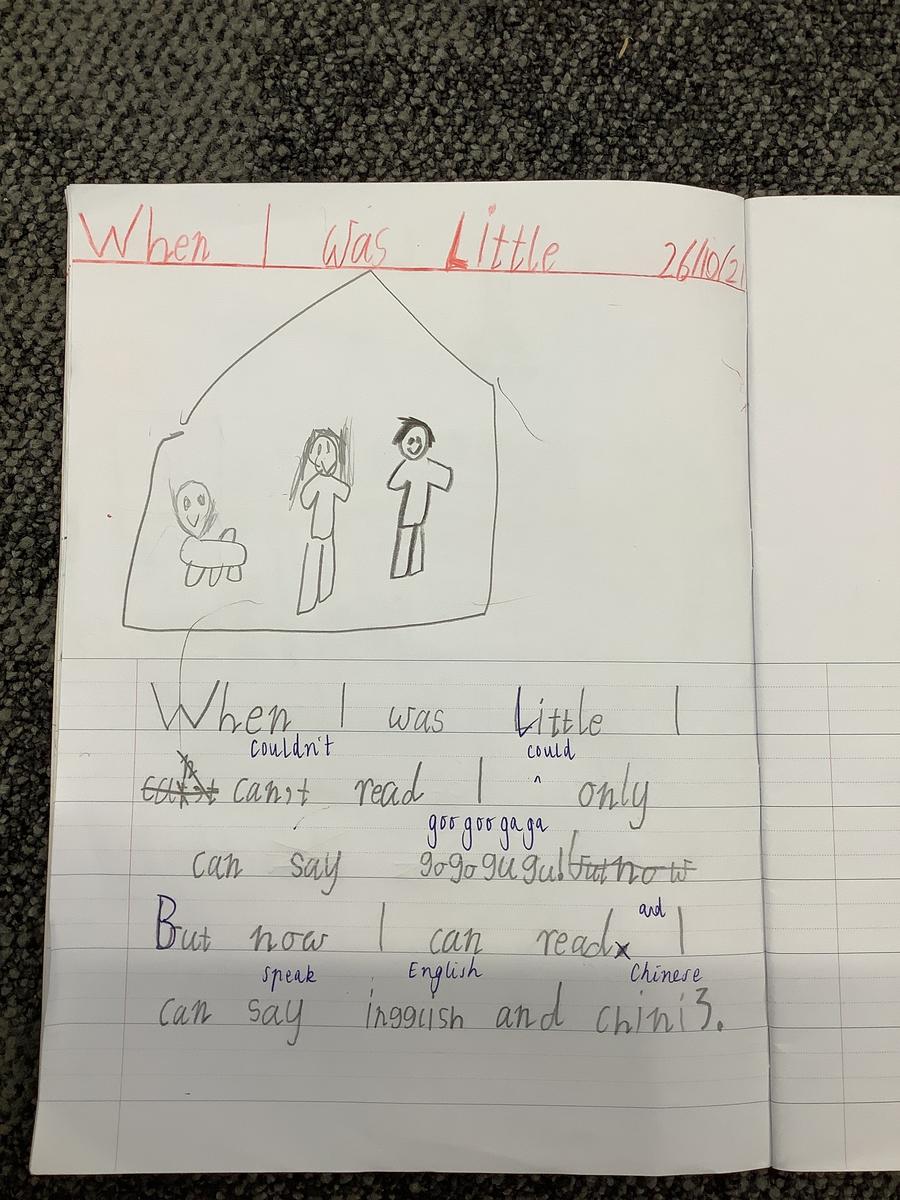 When I was Little 26/10/21
When I was Little I
couldn't could
can't can,t read I ^ only
goo goo ga ga
can say gogo gu gu! but now
But now I can readx and I
speak English Chinese
can say ingglish and chini3.